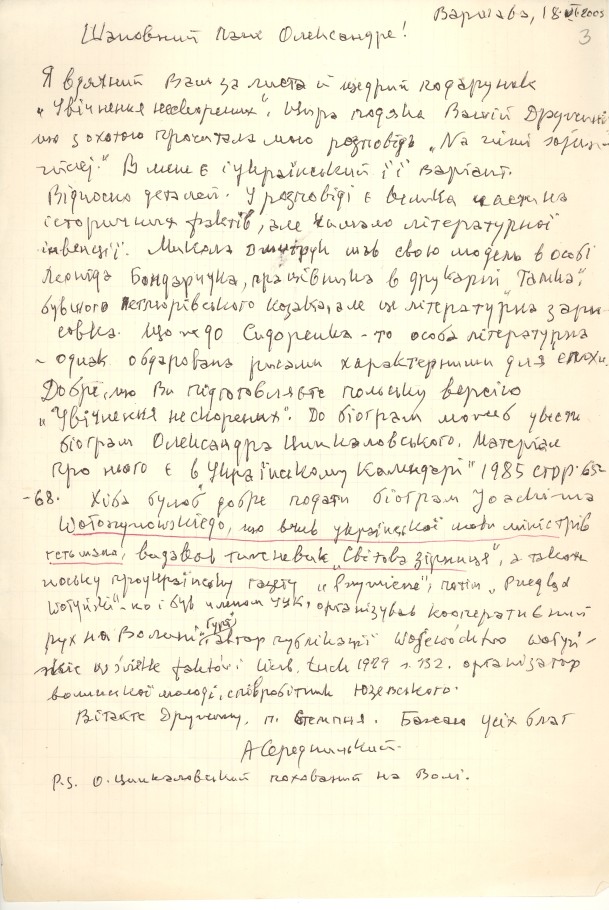 Варшава, 18.VI 2005
3
Шановний Пане Олександре!
Я вдячний Вам за листа й щедрий подарунок
„Увічнення нескорених". Щира подяка Вашій Дружині,
що з охотою прочитала мою розповідь „Na
". В мене є і український її варіант.
Відносно деталей. У розповіді є велика частина
історичних фактів, але чимало літературної
інвенції. Микола Дмитрук мав свою модель в особі
Леоніда Бондарчука, працівника в друкарні „Тамка",
бувшого петлюрівського козака, але це літературна зари-
совка. Що до Сидоренка – то особа літературна
– однак обдарована рисами характерними для епохи.
Добре, що Ви підготовляєте польську версію
„Увічнення нескорених". До біограм можнаб увести
біограм Олександра Цинкаловського. Матеріал
про нього є в „Українському Календарі" 1985 стор. 65-
-68. Хіба булоб добре подати біограм Joachima
Wołoszynowskiego, що вчив української мови міністрів
гетьмана, видавав тижневик „Світова зірниця", а також
польську проукраїнську газету „Przymierze", потім „Przegląd
Wołyński" – ко і був членом УЦК, організував кооперативний
рух на Волині, був автор публікації Województwo wołyń-
skie w świetle faktów i liczb, Łuck 1929 s. 132. організатор
волинської молоді, співробітник Юзевського.
Вітайте Дружину, п. Стемпня. Бажаю усіх благ
А Середницький
P.S. О. Цинкаловський похований на Волі.